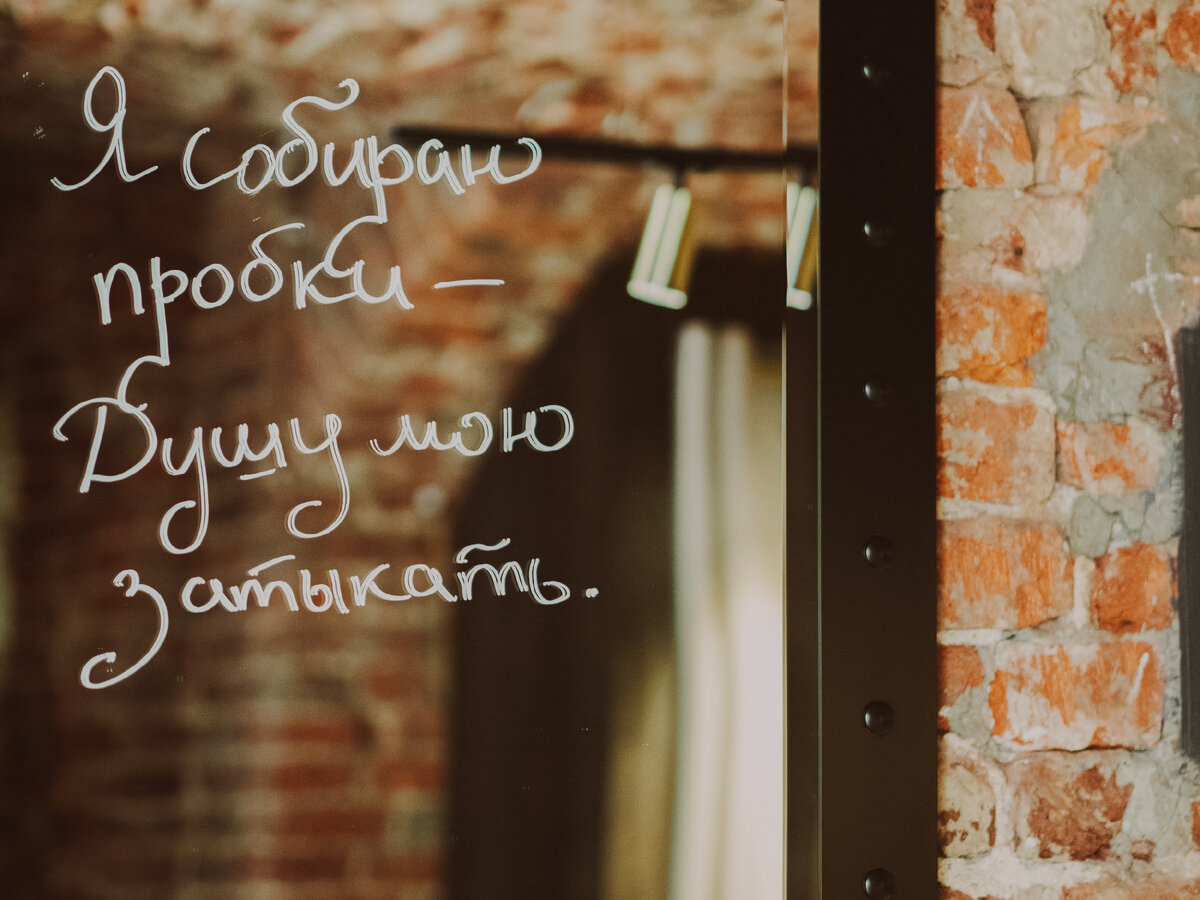 Я собираю
пробки –
Душу мою
затыкать.